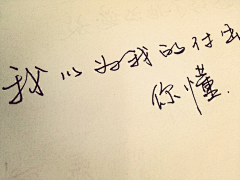 我以为我的付出
你懂.